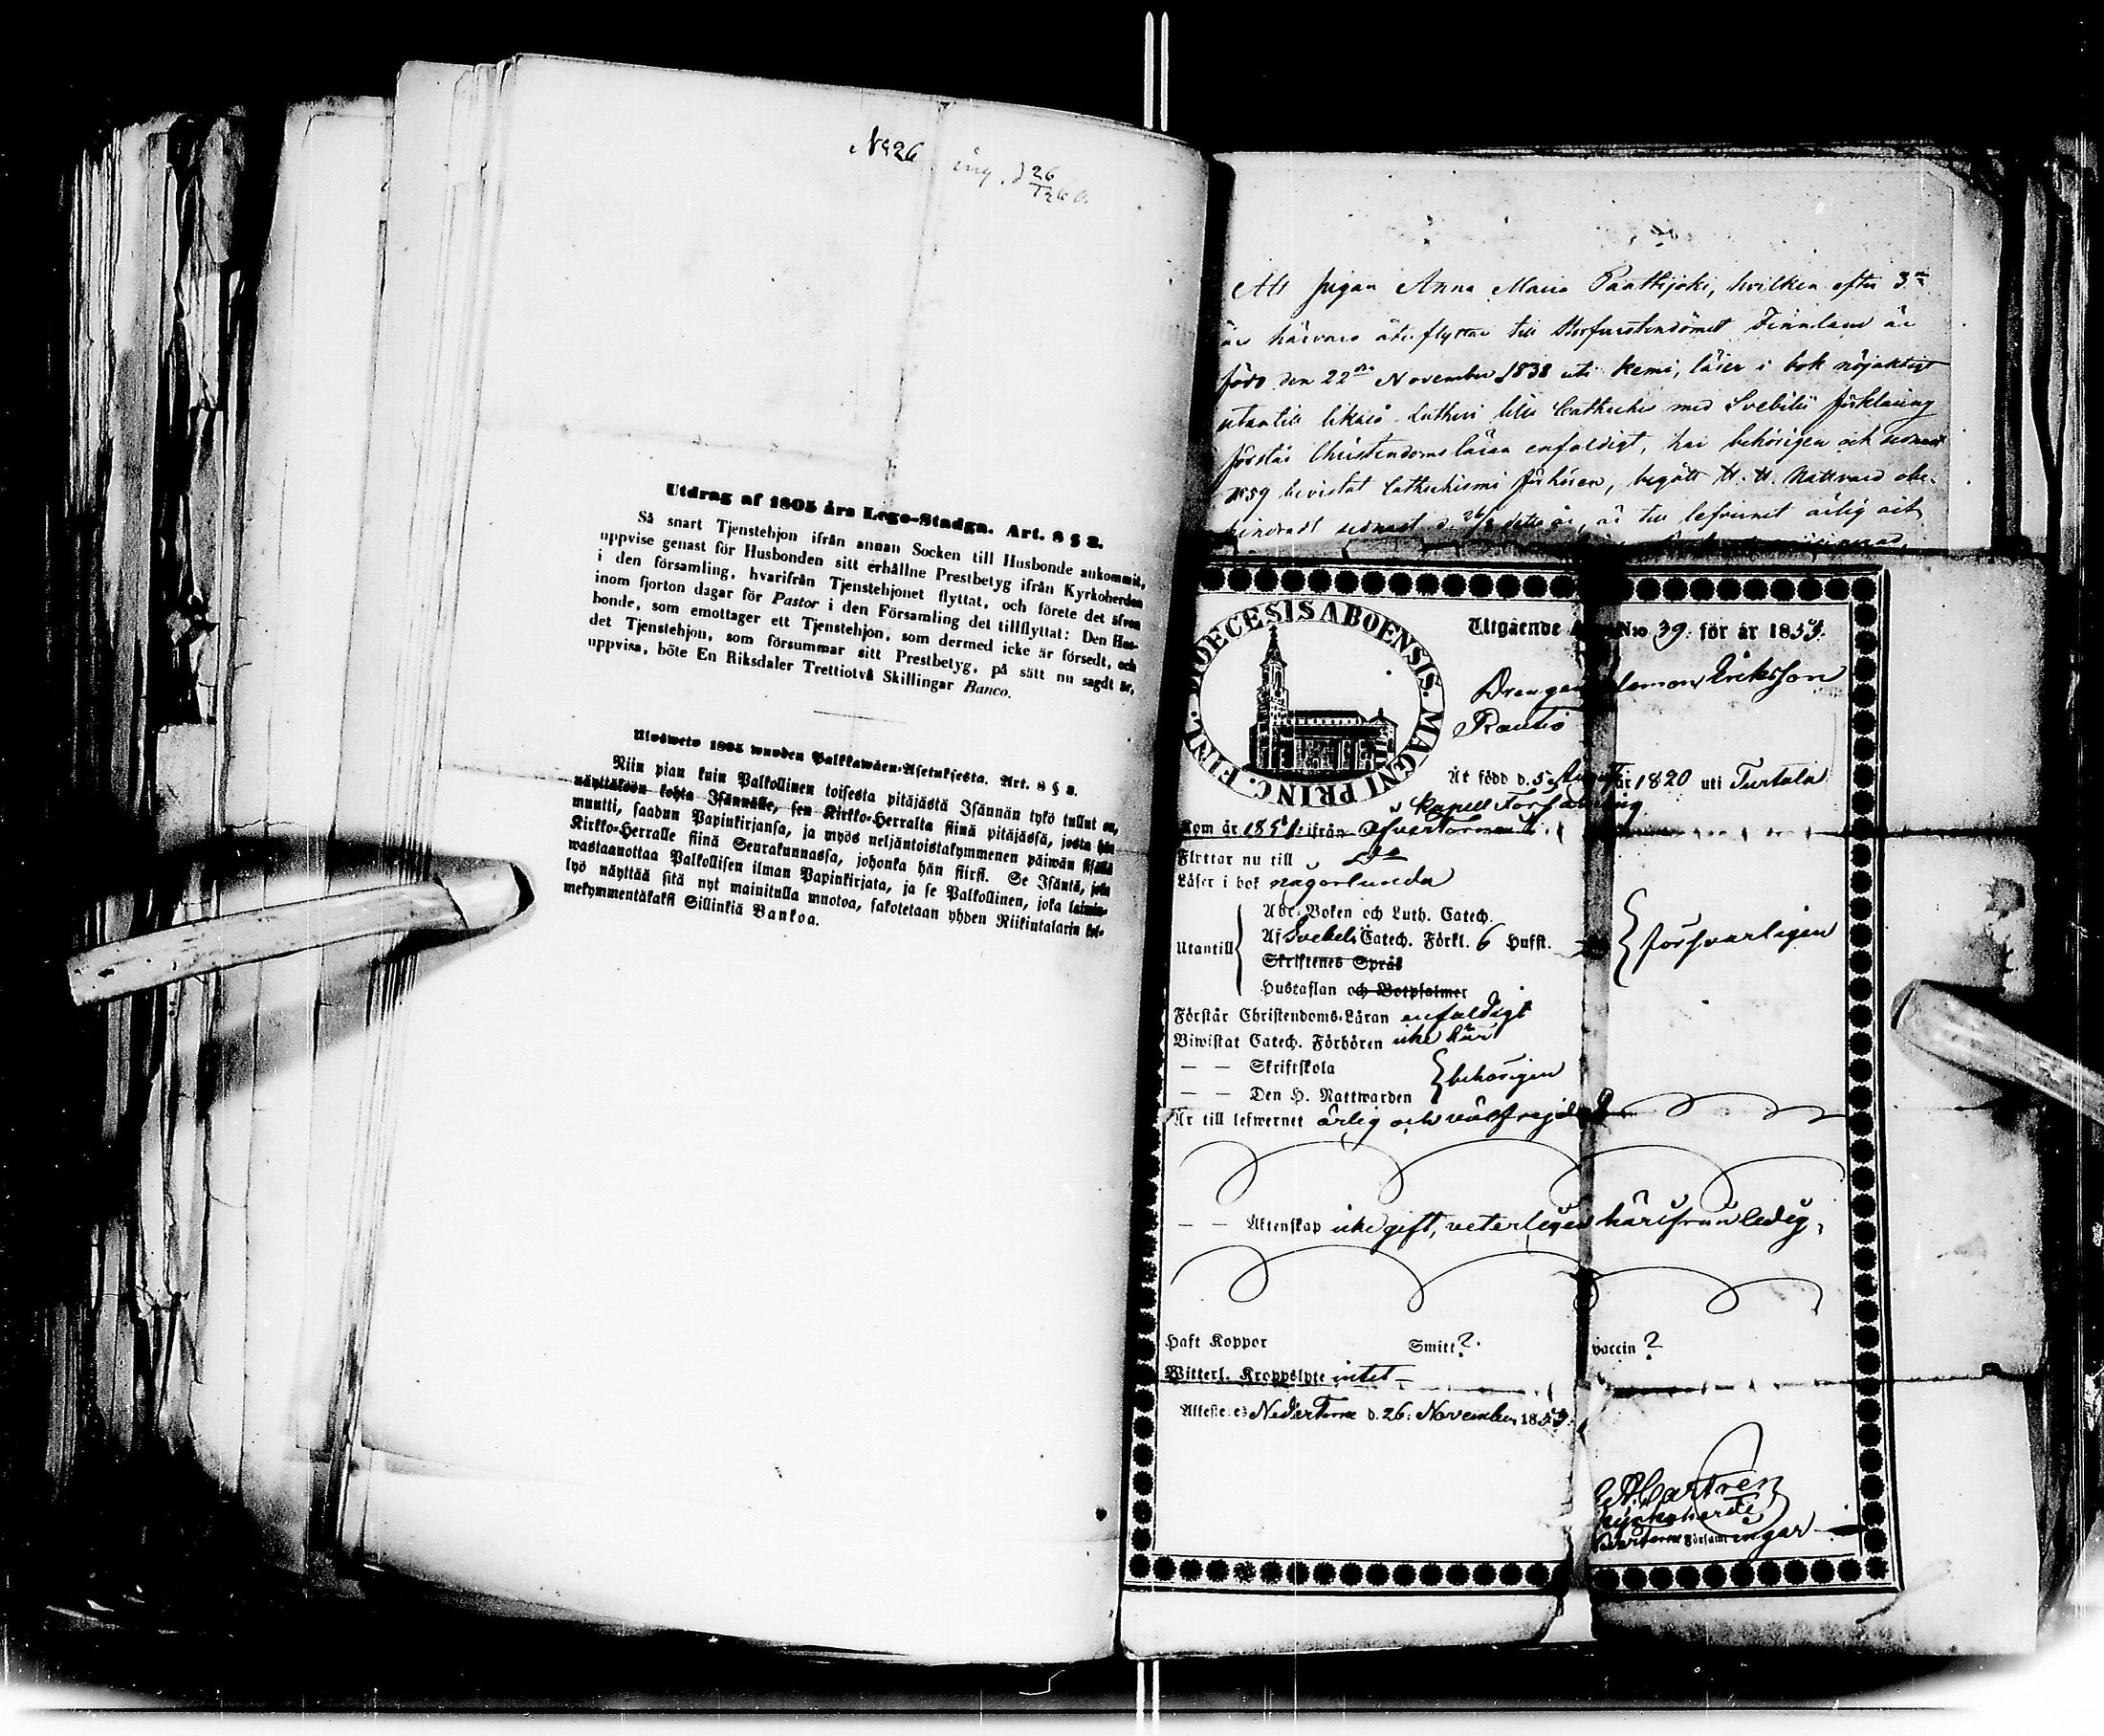 No 26 ing. d 26
Utdrag af 1805 års Lego-Stadga. Art. 8 § 2.
Så snart Tjenstehjon ifrån annan Socken till Husbonde ankommit,
uppvise genast för Husbonden sitt erhållne Prestbetyg ifrån Kyrkoherden
i den församling, hvarifrån Tjenstehjonet flyttat, och förete det äfven
inom fjorton dagar för Pastor i den Församling det tillflyttat: Den Hus-
bonde, som emottager ett Tjenstehjon, som dermed icke är försedt, och
det Tjenstehjon, som försummar sitt Prestbetyg, på sätt nu sagdt är,
uppvisa, böte En Riksdaler Trettiotvå Skillingar Banco.
Ulosweto 1805 wuoden Palkkawäen-Asetuksesta. Art. 8 § 2.
Niin pian kuin Palkollinen toisesta pitäjästä Isännän tykö tullut on,
näyttäköön kohta Isännälle, sen Kirkko-Herralta siinä pitäjässä, josta hän
muutti, saadun Papinkirjansa, ja myös neljäntoistakymmenen päiwän sisällä
Kirkko-Herralle siinä Seurakunnassa, johonka hän siirsi. Se Isäntä, joka
wastaanottaa Palkollisen ilman Papinkirjata, ja se Palkollinen, joka laimin-
lyö näyttää sitä nyt mainitulla muotoa, sakotetaan yhden Riikintalarin kol-
mekymmentäkaksi Sillinkiä Bankoa.
Att pigan Anna Maria Paattijoki, hvilken efter 3
års härvaro återflyttar till Storfurstendömet Finnland är
född den 22 November 1838 uti Kemi, läser i bok nöjaktigt
utantill likaså Lutheri lilla Catheches med Svebilii förklaring
förstår Christendomsläran enfaldigt, har behörigen och sednast
1859 bevistat Cathechismi förhören, begått H. H. Nattvard obe-
hindradt sednast d. 26/ detta år, är till lefvernet ärlig och
FINL. DIOECESIS ABOENSIS. MAGNI PRINC.
Utgående No 39. för år 185
Drengen Eriksson
Rautio
Är född d. 5 Aug år 1820 uti Turtola
Kapell Församling
Kom år 185 ifrån Öfvertorneå
Flyttar nu till
Läser i bok någorlunda
Utantill
Abc-Boken och Luth. Catech.
Af Svebelii Catech. Förkl. 6 Hufst.
försvarligen
Skriftenes Språk
Hustaflan och Botpsalmer
Förstår Christendoms-Läran enfaldigt
Biwistat Catech. Förhören icke här
— — Skriftskola
behörigen
— — Den H. Nattwarden
Är till lefwernet ärlig och välfrejdad
— — Äktenskap icke gift, veterligen härifrån ledig,
Haft Koppor Smitt? vaccin?
Witterl. Kroppslyte intet
Attesteres NederTorne d. 26. November 185
Kyrkoherde
Församlingar